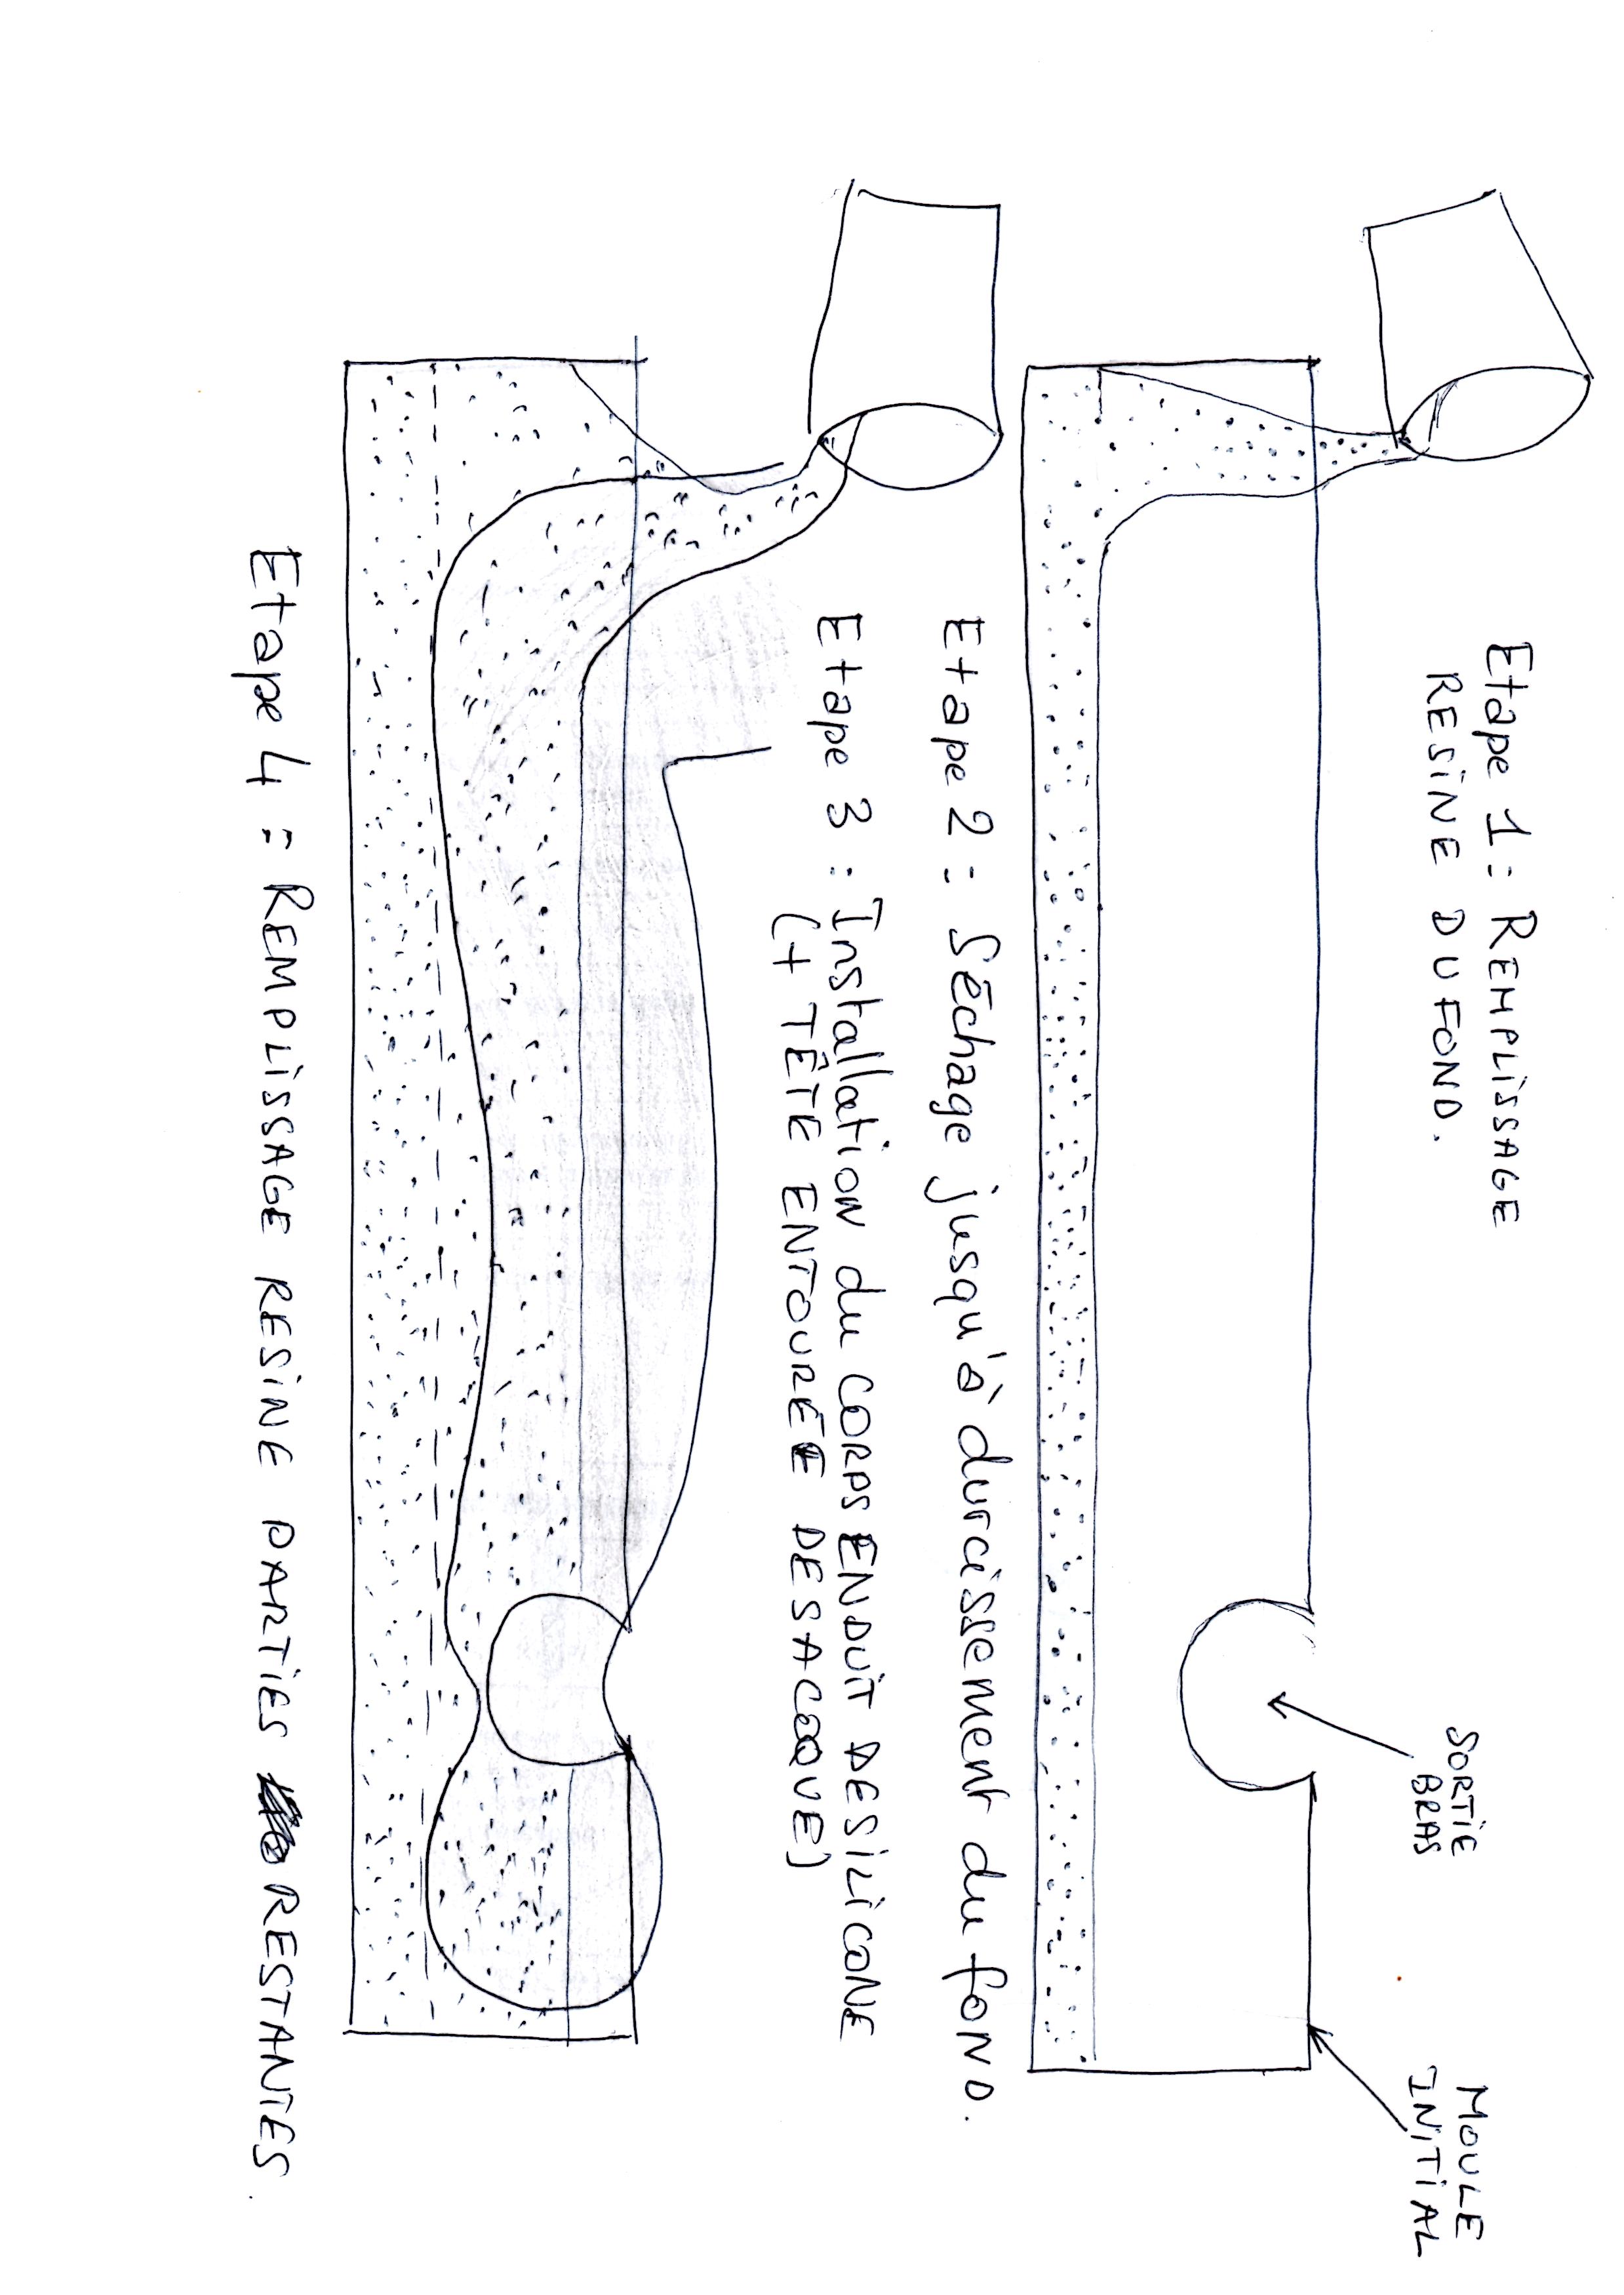 Etape 1 : REMPLISSAGE
RESINE DU FOND.
SORTIE
BRAS
MOULE
INITIAL
Etape 2 : Séchage jusqu'à durcissement du fOND.
Etape 3 : Installation du CORPS ENDUIT DE SILICONE
(+ TÊTE ENTOURÉE DE SA COQUE)
Etape 4 : REMPLISSAGE RESINE PARTIES RESTANTES.